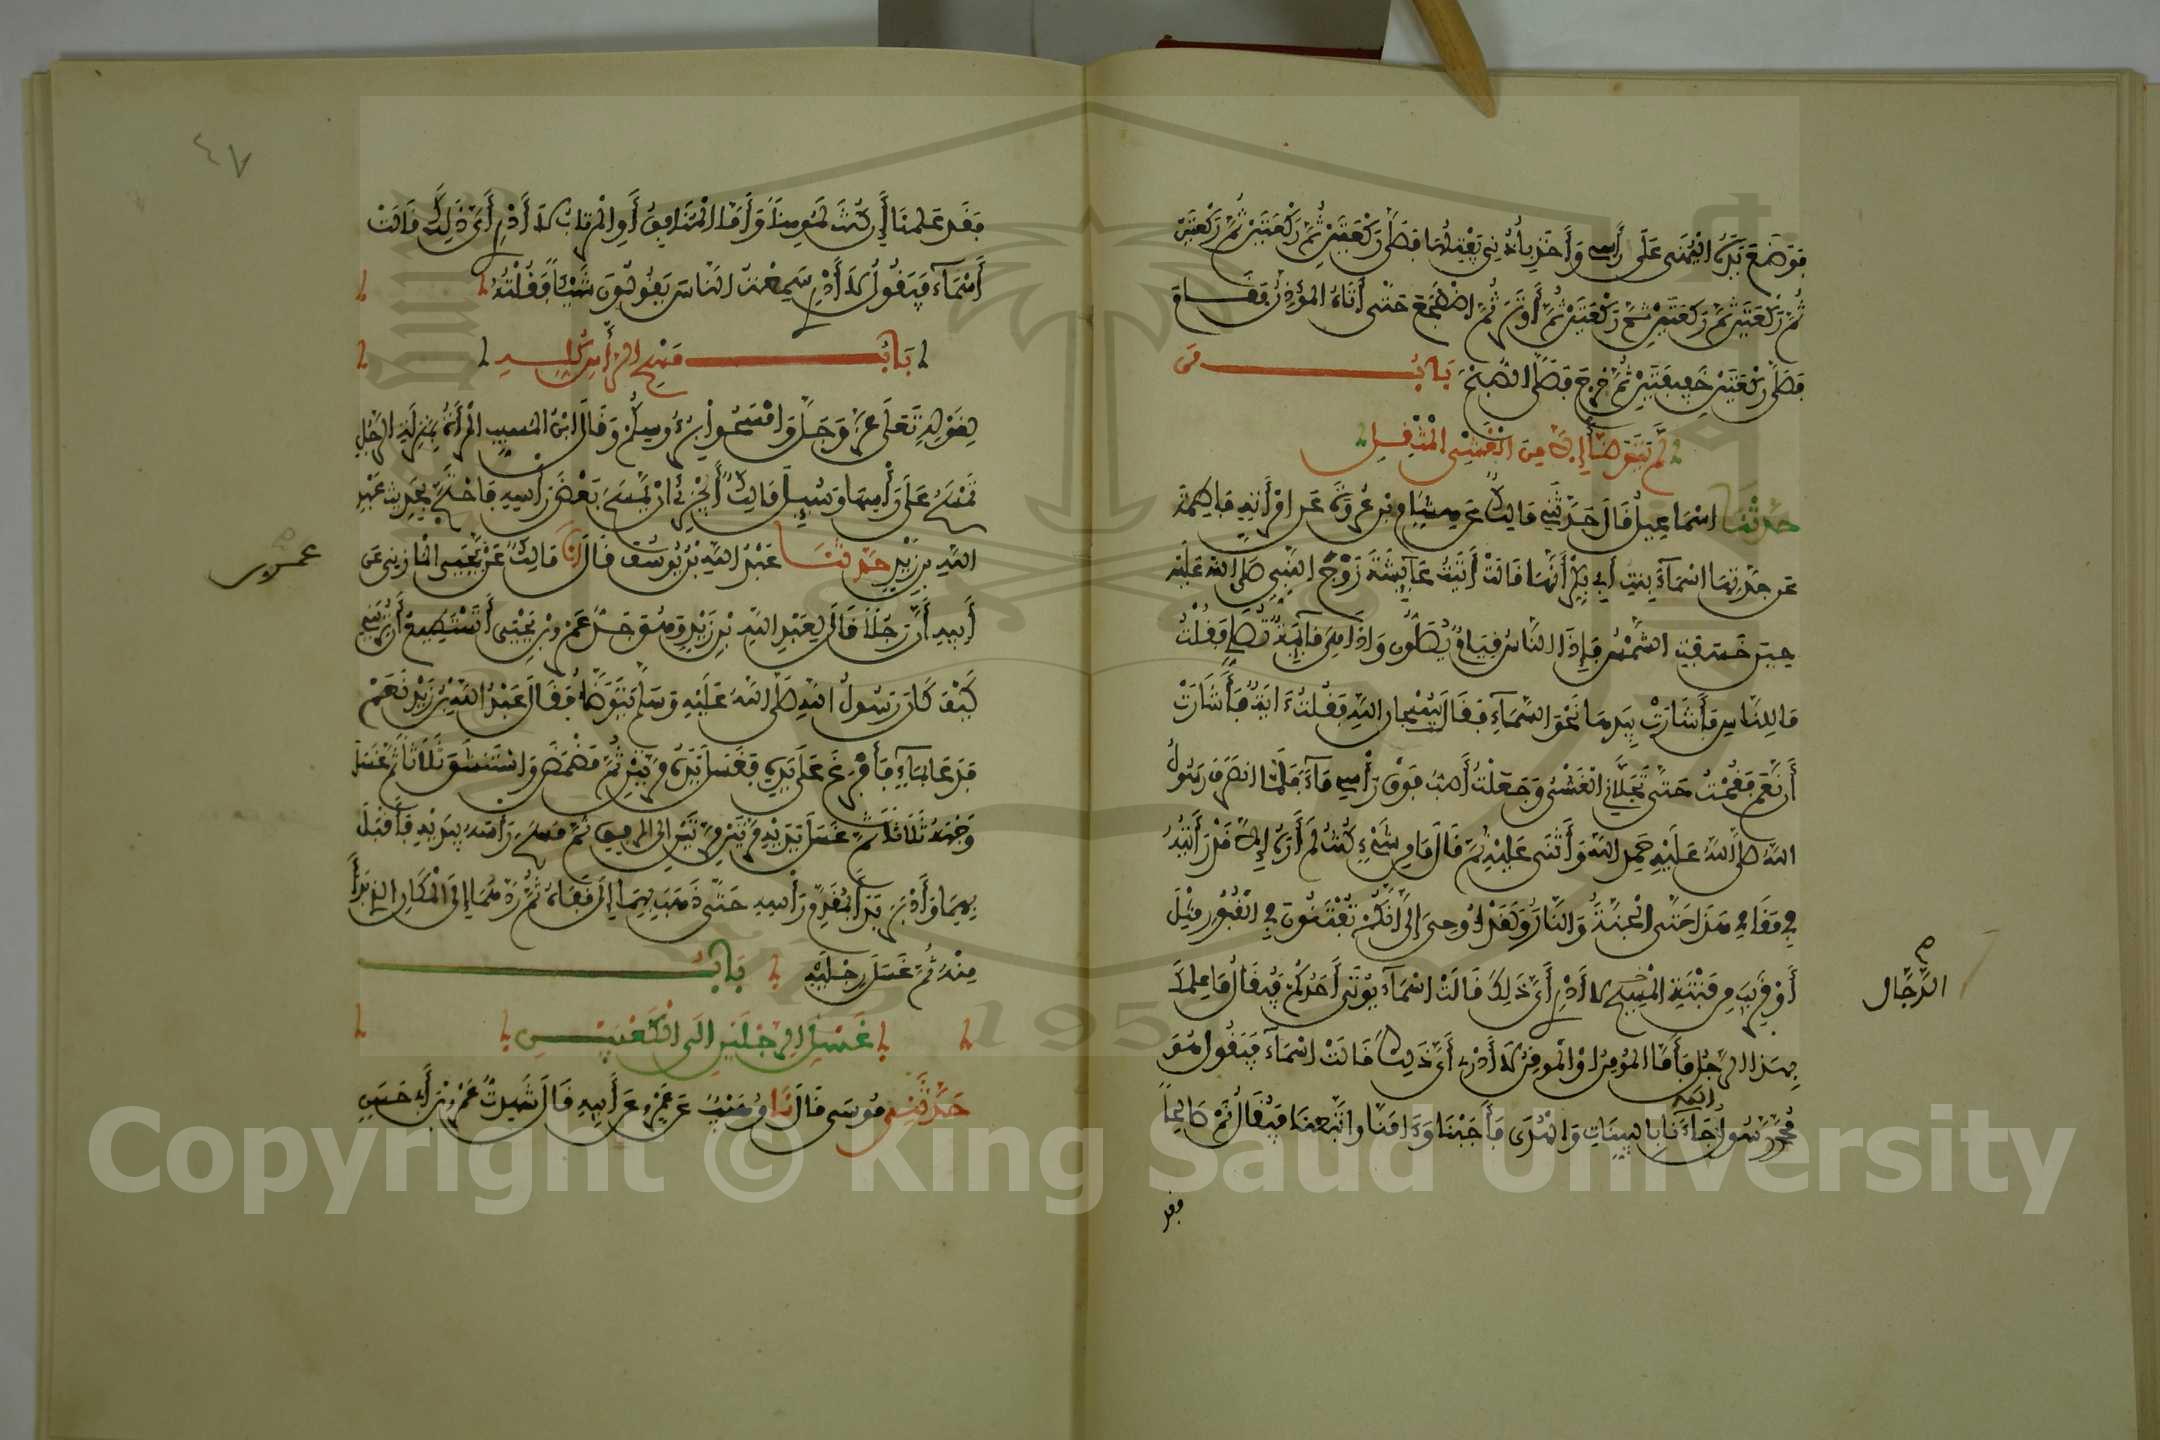 فوضع يده اليمنى على رأسي وأخذ بأذني يفتلها فصلى ركعتين ثم ركعتين ثم ركعتين
ثم ركعتين ثم ركعتين ثم ركعتين ثم أوتر ثم اضطجع حتى أتاه المؤذن فقام
فصلى ركعتين خفيفتين ثم خرج فصلى الصبح باب من
لم يتوضأ إلا من الغشي المثقل
حدثنا اسماعيل قال حدثني مالك عن هشام بن عروة عن امرأته فاطمة
عن جدتها اسماء بنت أبي بكر أنها قالت أتيت عايشة زوج النبي صلى الله عليه
حين خسفت الشمس فإذا الناس قيام يصلون وإذا هي قايمة تصلي فقلت
ما للناس فأشارت بيدها نحو السماء فقالت سبحان الله فقلت ءاية فأشارت
أن نعم فقمت حتى تجلاني الغشي وجعلت أصب فوق رأسي ماء فلما انصرف رسول
الله صلى الله عليه حمد الله وأثنى عليه ثم قال ما من شيء كنت لم أره إلا قد رأيته
في مقامي هذا حتى الجنة والنار ولقد أوحي إلي أنكم تفتنون في القبور مثل
أو قريب من فتنة المسيح لا أدري أي ذلك قالت اسماء يوتى أحدكم فيقال ما علمك
الدجال
بهذا الرجل فأما المومن أو الموقن لا أدري أي ذلك قالت اسماء فيقول هو
محمد رسول الله جاءنا بالبينات والهدى فأجبنا وءامنا واتبعنا فيقال نم صالحا
فقد
٤٧
فقد علمنا إن كنت لمومنا وأما المنافق أو المرتاب لا أدري أي ذلك قالت
أسماء فيقول لا أدري سمعت الناس يقولون شيئا فقلته
باب مسح الرأس كله
لقوله تعلى عز وجل وامسحوا برءوسكم وقال ابن المسيب المرأة بمنزلة الرجل
تمسح على رأسها وسيل مالك أيجزئ أن يمسح بعض رأسه فاحتج بحديث عبد
الله بن زيد حدثنا عبد الله بن يوسف قال أنا مالك عن يحيى المازني عن
عمرو بن
أبيه أن رجلا قال لعبد الله بن زيد وهو جد عمرو بن يحيى أتستطيع أن تريني
كيف كان رسول الله صلى الله عليه وسلم يتوضأ فقال عبد الله بن زيد نعم
فدعا بماء فأفرغ على يده فغسل يده مرتين ثم مضمض واستنشق ثلاثا ثم غسل
وجهه ثلاثا ثم غسل يديه مرتين مرتين إلى المرفقين ثم مسح رأسه بيديه فأقبل
بهما وأدبر بدأ بمقدم رأسه حتى ذهب بهما إلى قفاه ثم ردهما إلى المكان الذي بدأ
منه ثم غسل رجليه باب
غسل الرجلين إلى الكعبين
حدثني موسى قال نا وهيب عن عمرو عن أبيه قال شهدت عمرو بن أبي حسن
1957
Copyright © King Saud University